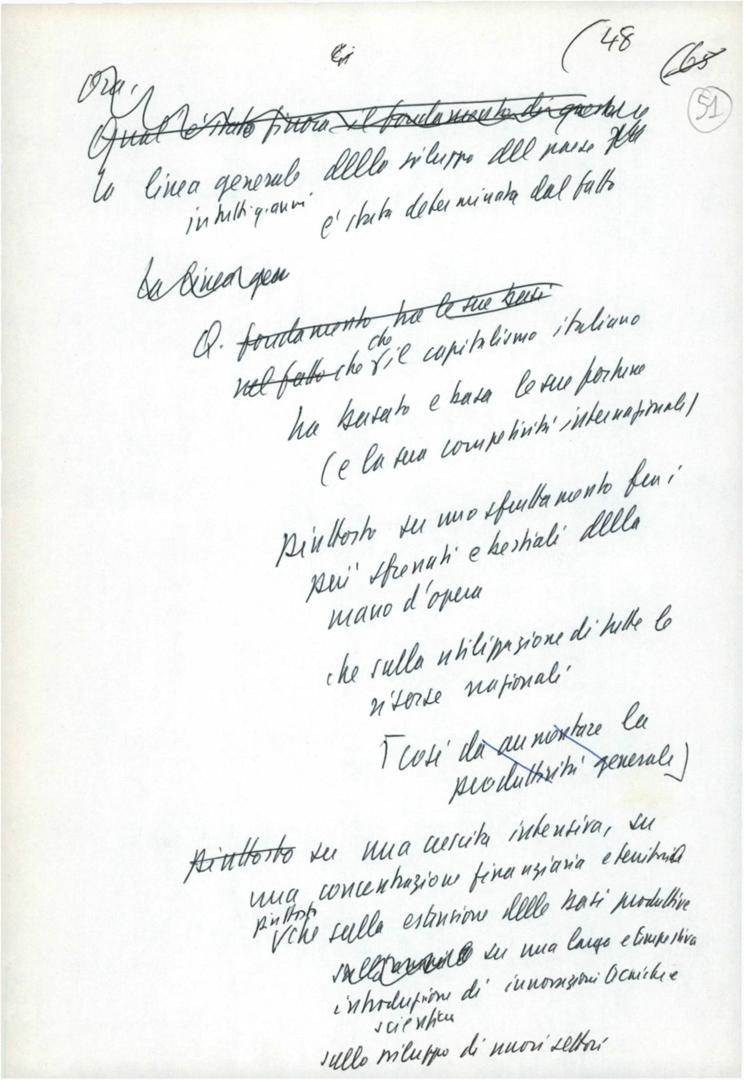 (48
(65
51
Ora,
Qual è stato finora il fondamento di questa
la linea generale dello sviluppo del paese
in tutti gli anni
è stata determinata dal fatto
La linea gen
Q. fondamento ha le sue basi
nel fatto che che il capitalismo italiano
ha basato e basa le sue fortune
(e la sua competività internazionale)
piuttosto su uno sfruttamento fra i
più sfrenati e bestiali della
mano d'opera
che sulla utilizzazione di tutte le
risorse nazionali
[così da aumentare la
produttività generale]
piuttosto su una crescita intensiva, su
una concentrazione finanziaria e territoriale
piuttosto
che sulla estensione delle basi produttive
su una larga e tempestiva
introduzione di innovazioni tecniche e
scientifiche
sullo sviluppo di nuovi settori